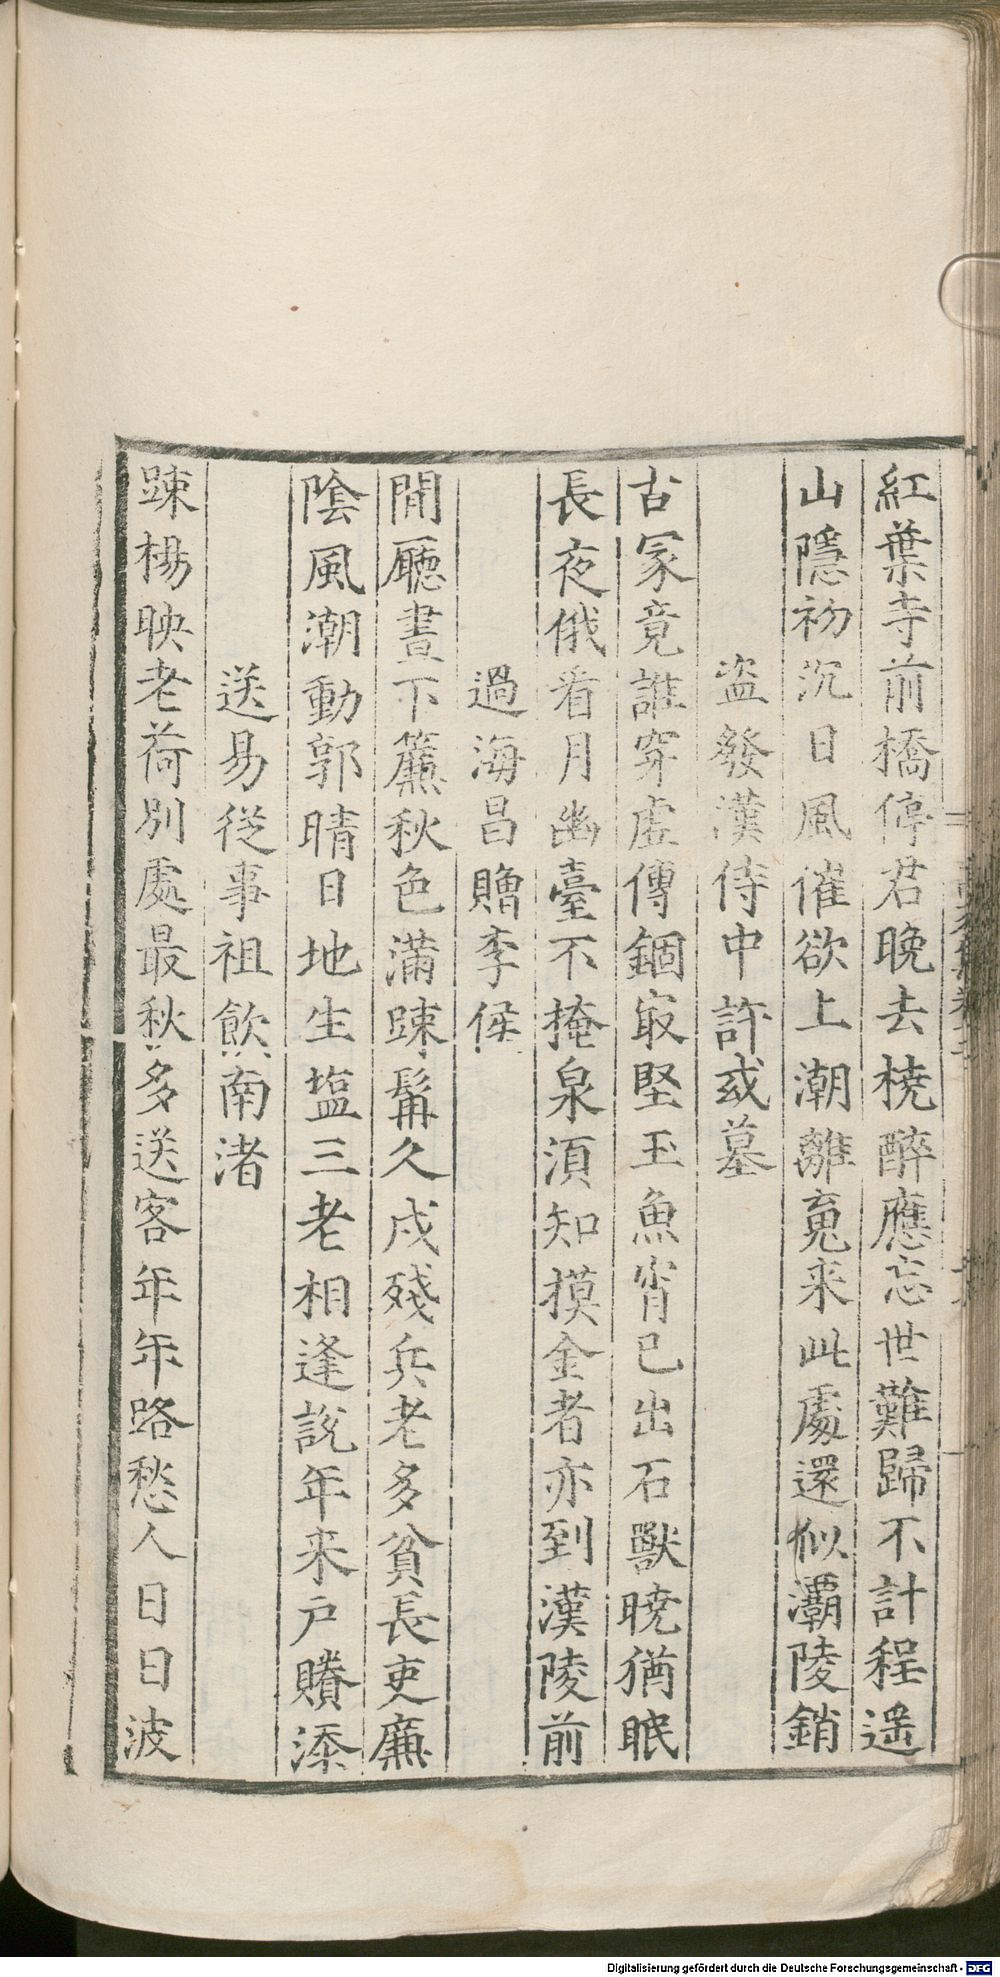 紅葉寺前橋停君晚去橈醉應忘世難歸不計程遙
山隱初沉日風催欲上潮離䰟来此處還似灞陵銷
盜發漢侍中許彧墓
古冢竟誰穿虛傳錮㝡堅玉魚宵已出石獸曉猶眠
長夜俄看月幽臺不掩泉湏知摸金者亦到漢陵前
過海昌贈李侯
閒廳晝下簾秋色滿踈髯久戍殘兵老多貧長吏廉
陰風潮動郭晴日地生塩三老相逢說年来戶賸添
送易從事祖飲南渚
踈楊映老荷別處最秋多送客年年路愁人日日波
Digitalisierung gefördert durch die Deutsche Forschungsgemeinschaft - DFG